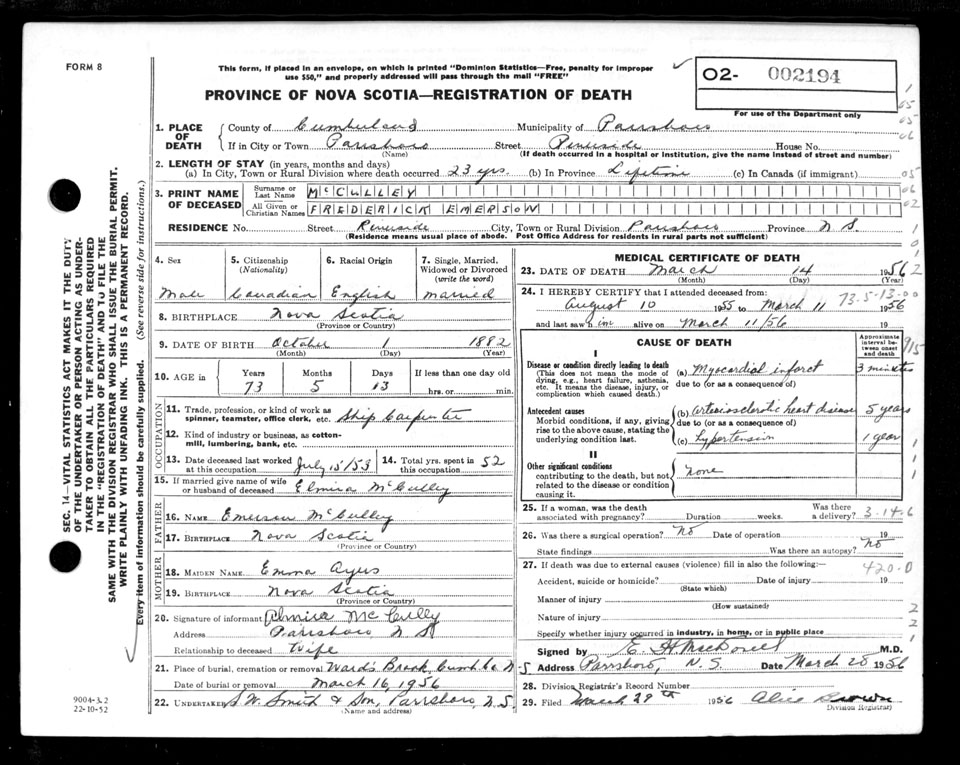 FORM 8
This form, if placed in an envelope, on which is printed "Dominion Statistics—Free, penalty for improper
use $50," and properly addressed will pass through the mail "FREE"
O2- 002194
PROVINCE OF NOVA SCOTIA—REGISTRATION OF DEATH
For use of the Department only
1. PLACE OF DEATH
County of Cumberland Municipality of Parrsboro
If in City or Town Parrsboro Street Riverside House No.
(Name) (If death occurred in a hospital or institution, give the name instead of street and number)
2. LENGTH OF STAY (in years, months and days)
(a) In City, Town or Rural Division where death occurred 23 yrs. (b) In Province Lifetime (c) In Canada (if immigrant)
3. PRINT NAME OF DECEASED
Surname or Last Name McCULLEY
All Given or Christian Names FREDERICK EMERSON
RESIDENCE No. Street Riverside City, Town or Rural Division Parrsboro Province N S.
(Residence means usual place of abode. Post Office Address for residents in rural parts not sufficient)
4. Sex 5. Citizenship 6. Racial Origin 7. Single, Married,
(Nationality) Widowed or Divorced
(write the word)
Male Canadian English Married
8. BIRTHPLACE Nova Scotia
(Province or Country)
9. DATE OF BIRTH October 1 1882
(Month) (Day) (Year)
10. AGE in Years Months Days If less than one day
73 5 13 hrs. or min.
OCCUPATION
11. Trade, profession, or kind of work as
spinner, teamster, office clerk, etc. Ship Carpenter
12. Kind of industry or business, as cotton-
mill, lumbering, bank, etc.
13. Date deceased last worked
at this occupation July 15/53
14. Total yrs. spent in
this occupation 52
15. If married give name of wife
or husband of deceased Elmira McCulley
FATHER
16. NAME Emerson McCulley
17. BIRTHPLACE Nova Scotia
(Province or Country)
MOTHER
18. MAIDEN NAME Emma
19. BIRTHPLACE Nova Scotia
(Province or Country)
20. Signature of informant Elmira McCulley
Address Parrsboro N S
Relationship to deceased Wife
21. Place of burial, cremation or removal Ward's Brook, Cumb. Co. N-S
Date of burial or removal March 16, 1956
22. UNDERTAKER S W. Smith & Son, Parrsboro, N.S.
(Name and address)
MEDICAL CERTIFICATE OF DEATH
23. DATE OF DEATH March 14 1956
(Month) (Day) (Year)
24. I HEREBY CERTIFY that I attended deceased from:
August 10 1955 to March 11 1956
and last saw him alive on March 11/56 19
73.5-13.00
CAUSE OF DEATH
Approximate
interval be-
tween onset
and death
I
Disease or condition directly leading to death
(This does not mean the mode of
dying, e.g., heart failure, asthenia,
etc. It means the disease, injury, or
complication which caused death.)
(a) Myocardial infarct 3 minutes
due to (or as a consequence of)
Antecedent causes
Morbid conditions, if any, giving
rise to the above cause, stating the
underlying condition last.
(b) arteriosclerotic heart disease 5 years
due to (or as a consequence of)
(c) hypertension 1 year
II
Other significant conditions
contributing to the death, but not
related to the disease or condition
causing it.
none
25. If a woman, was the death Was there
associated with pregnancy? Duration weeks. a delivery? 3-14-6
26. Was there a surgical operation? No Date of operation 19
State findings Was there an autopsy? No
27. If death was due to external causes (violence) fill in also the following:— 420.0
Accident, suicide or homicide? Date of injury 19
(State which)
Manner of injury
(How sustained)
Nature of injury
Specify whether injury occurred in industry, in home, or in public place
Signed by E. H MacDonell M.D.
Address Parrsboro, N.S. Date March 20 1956
28. Division Registrar's Record Number
29. Filed March 29th 1956 Alice Brown
(Division Registrar)
SEC. 14—VITAL STATISTICS ACT MAKES IT THE DUTY
OF THE UNDERTAKER OR PERSON ACTING AS UNDER-
TAKER TO OBTAIN ALL THE PARTICULARS REQUIRED
IN THE "REGISTRATION OF DEATH" AND TO FILE THE
SAME WITH THE DIVISION REGISTRAR WHO SHALL ISSUE THE BURIAL PERMIT.
WRITE PLAINLY WITH UNFADING INK. THIS IS A PERMANENT RECORD.
Every item of information should be carefully supplied. (See reverse side for instructions.)
9004-3.2
22-10-52